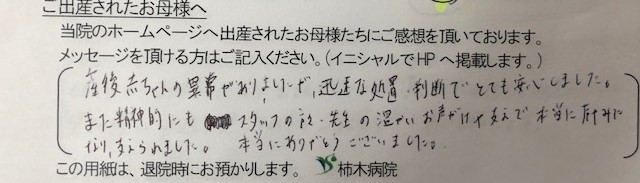 ご出産されたお母様へ
当院のホームページへ出産されたお母様たちにご感想を頂いております。
メッセージを頂ける方はご記入ください。(イニシャルでHPへ掲載します。)
産後赤ちゃんの異常がありましたが、迅速な処置・判断でとても安心しました。
また精神的にも スタッフの方々・先生の温かいお声がけや支えで本当に励みに
なり、支えられました。 本当にありがとうございました。
この用紙は、退院時にお預かりします。 柿木病院